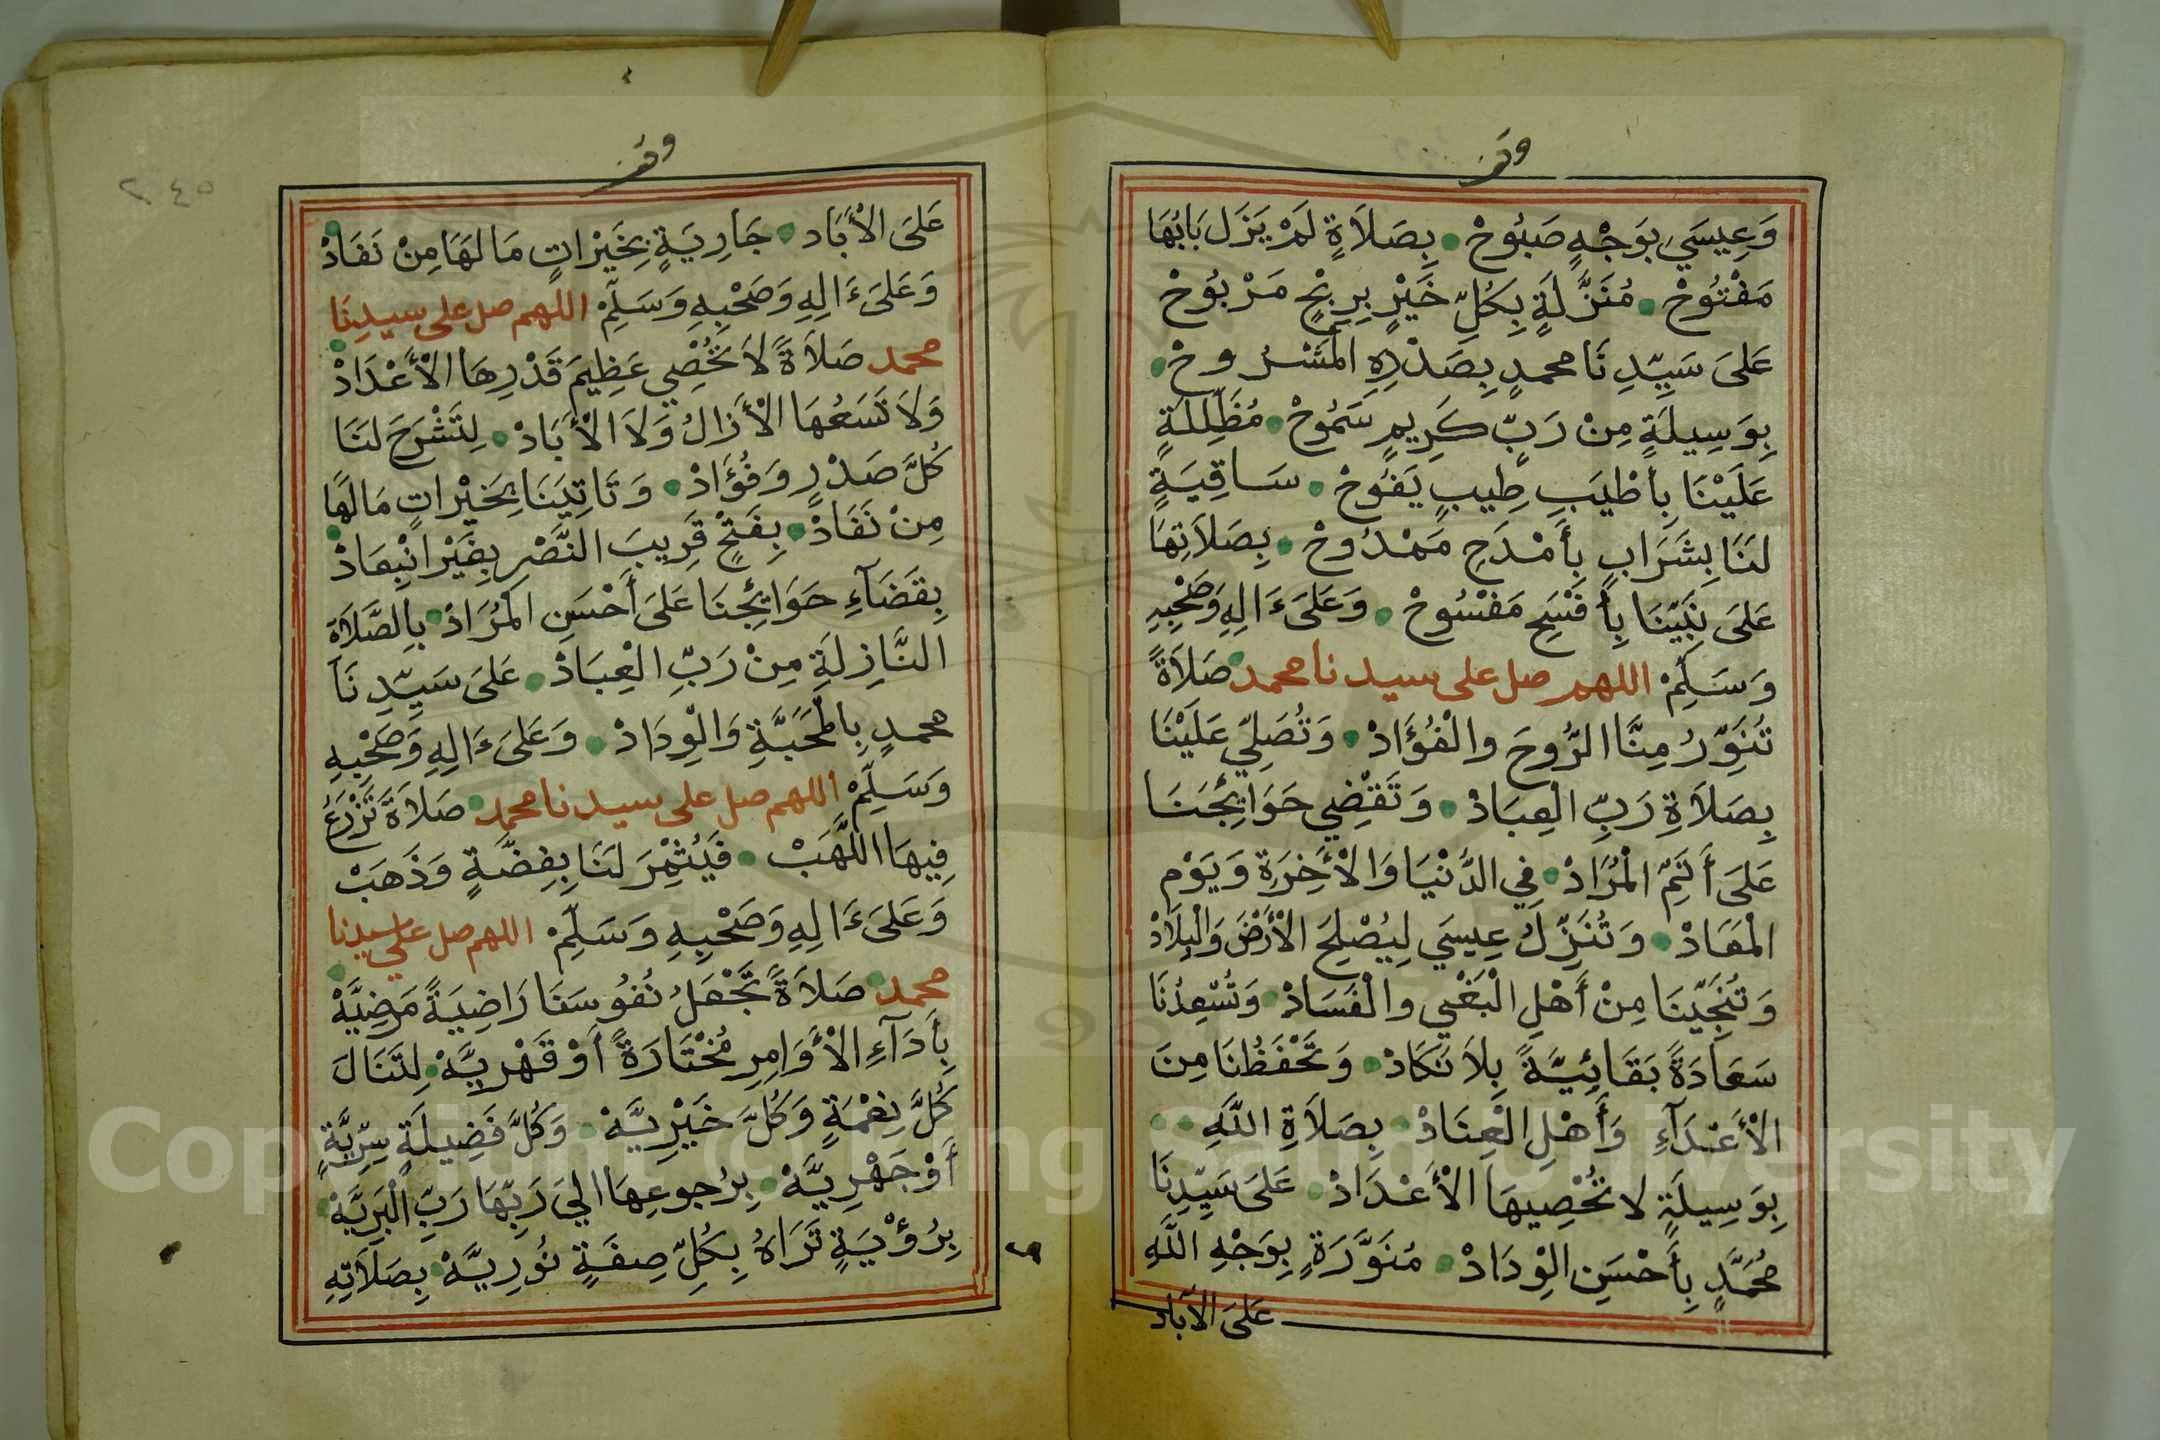 وقف
وَعِيسَي بوَجْهٍ صَبُوحْ • بِصَلاَةٍ لَمْ يَزَل بَابُهَا
مَفْتُوحْ • مُنَزَّلَةٍ بِكُلِّ خَيْرٍ بِرِبْحٍ مَرْبُوحْ
عَلَىَ سَيِّدِنَا محمدٍ بِصَدْرِهِ المَشْرُوحْ •
بِوَسِيلَةٍ مِنْ رَبٍّ كَرِيمٍ سَمُوحْ • مُظَلِّلَةٍ
عَلَيْنَا بِأَطْيَبِ طِيبٍ يَفُوحْ • سَاقِيَةٍ
لَنَا بِشَرَابٍ بِأَمْدَحِ مَمْدُوحْ • بِصَلاَتِهَا
عَلَىَ نَبِيِّنَا بِأَفْسَحِ مَفْسُوحْ • وَعَلَىَ ءَالِهِ وَصَحْبِهِ
وَسَلِّمْ اللهم صل على سيدنا محمد صَلاَةً
تُنَوِّرُ مِنَّا الرُّوحَ والْفُؤَادْ • وَتُصَلِّي عَلَيْنَا
بِصَلاَةِ رَبِّ الْعِبَادْ • وَتَقْضِي حَوَائِجَنَا
عَلَىَ أَتَمِّ الْمُرَادْ • فِي الدُّنْيَا وَالْأَخِرَةِ وَيَوْمِ
الْمَعَادْ • وَتُنَزِّلُ عِيسَي لِيُصْلِحَ الْأَرْضَ وَالْبِلاَدْ
وَتُنَجِّيَنَا مِنْ أَهْلِ الْبَغْيِ والْفَسَادْ • وَتُسْعِدُنَا
سَعَادَةً بَقَائِيَّةً بِلاَ نَكَادْ • وَتَحْفَظُنَا مِنَ
الْأَعْدَآءِ وَأَهْلِ الْعِنَادْ • بِصَلاَةِ اللَّهِ • •
بِوَسِيلَةٍ لا تُحْصِيهَا الْأَعْدَادْ • عَلَىَ سَيِّدِنَا
مُحَمَّدٍ بِأَحْسَنِ الْوِدَادْ • مُنَوَّرَةٍ بِوَجْهِ اللَّهِ
عَلىَ الآباد
وقف
٢٤٥
عَلَىَ الأَبَاد • جَارِيَةٍ بِخَيْرَاتٍ مَا لَهَا مِنْ نَفَادْ •
وَعَلَىَ ءَالِهِ وَصَحْبِهِ وَسَلِّمْ اللهم صل على سيدِنَا
محمد صَلاَةً لاَ تُحْصِي عَظِيمَ قَدْرِهَا الْأَعْدَادْ •
وَلاَ تَسَعُهَا الْأَزَالُ وَلاَ الْأَبَادْ • لِتَشْرَحَ لَنَا
كُلَّ صَدْرٍ وَفُؤَادْ • وَتَاتِيَنَا بِخَيْرَاتٍ مَا لَهَا
مِنْ نَفَادْ • بِفَتْحٍ قَرِيبَ النَّصْرِ بِغَيْرِ انْبِعَادْ •
بِقَضَآءِ حَوَائِجِنَا عَلَىَ أَحْسَنِ الْمُرَادْ • بِالصَّلاَةِ
النَّازِلَةِ مِنْ رَبِّ الْعِبَادْ • عَلَىَ سَيِّدِنَا
محمدٍ بِالْمَحَبَّةِ وَالْوِدَادْ • وَعَلَىَ ءَالِهِ وَصَحْبِهِ
وَسَلِّمْ اللهم صل على سيدنا محمد • صَلاَةً تَزْرَعُ
فِيهَا اللَّهَبْ • فَيُثْمِرَ لَنَا بِفِضَّةٍ وَذَهَبْ
وَعَلَىَ ءَالِهِ وَصَحْبِهِ وَسَلِّمْ اللهم صل على سيدنا
محمد • صَلاَةً تَجْعَلُ نُفُوسَنَا رَاضِيَةً مَرْضِيَّهْ •
بِأَدَآءِ الْأَوَامِرِ مُخْتَارَةً أَوْ قَهْرِيَّهْ • لِتَنَالَ
كُلَّ نِعْمَةٍ وَكُلَّ خَيْرِيَّهْ • وَكُلَّ فَضِيلَةٍ سِرِّيَّةٍ
أَوْ جَهْرِيَّهْ • بِرُجوعِهَا الِيَ رَبِّهَا رَبِّ الْبَرِيَّهْ •
بِرُؤْيَةٍ تَرَاهُ بِكُلِّ صِفَةٍ نُورِيَّهْ • بِصَلاَتِهِ
Copyright (c) King Saud University